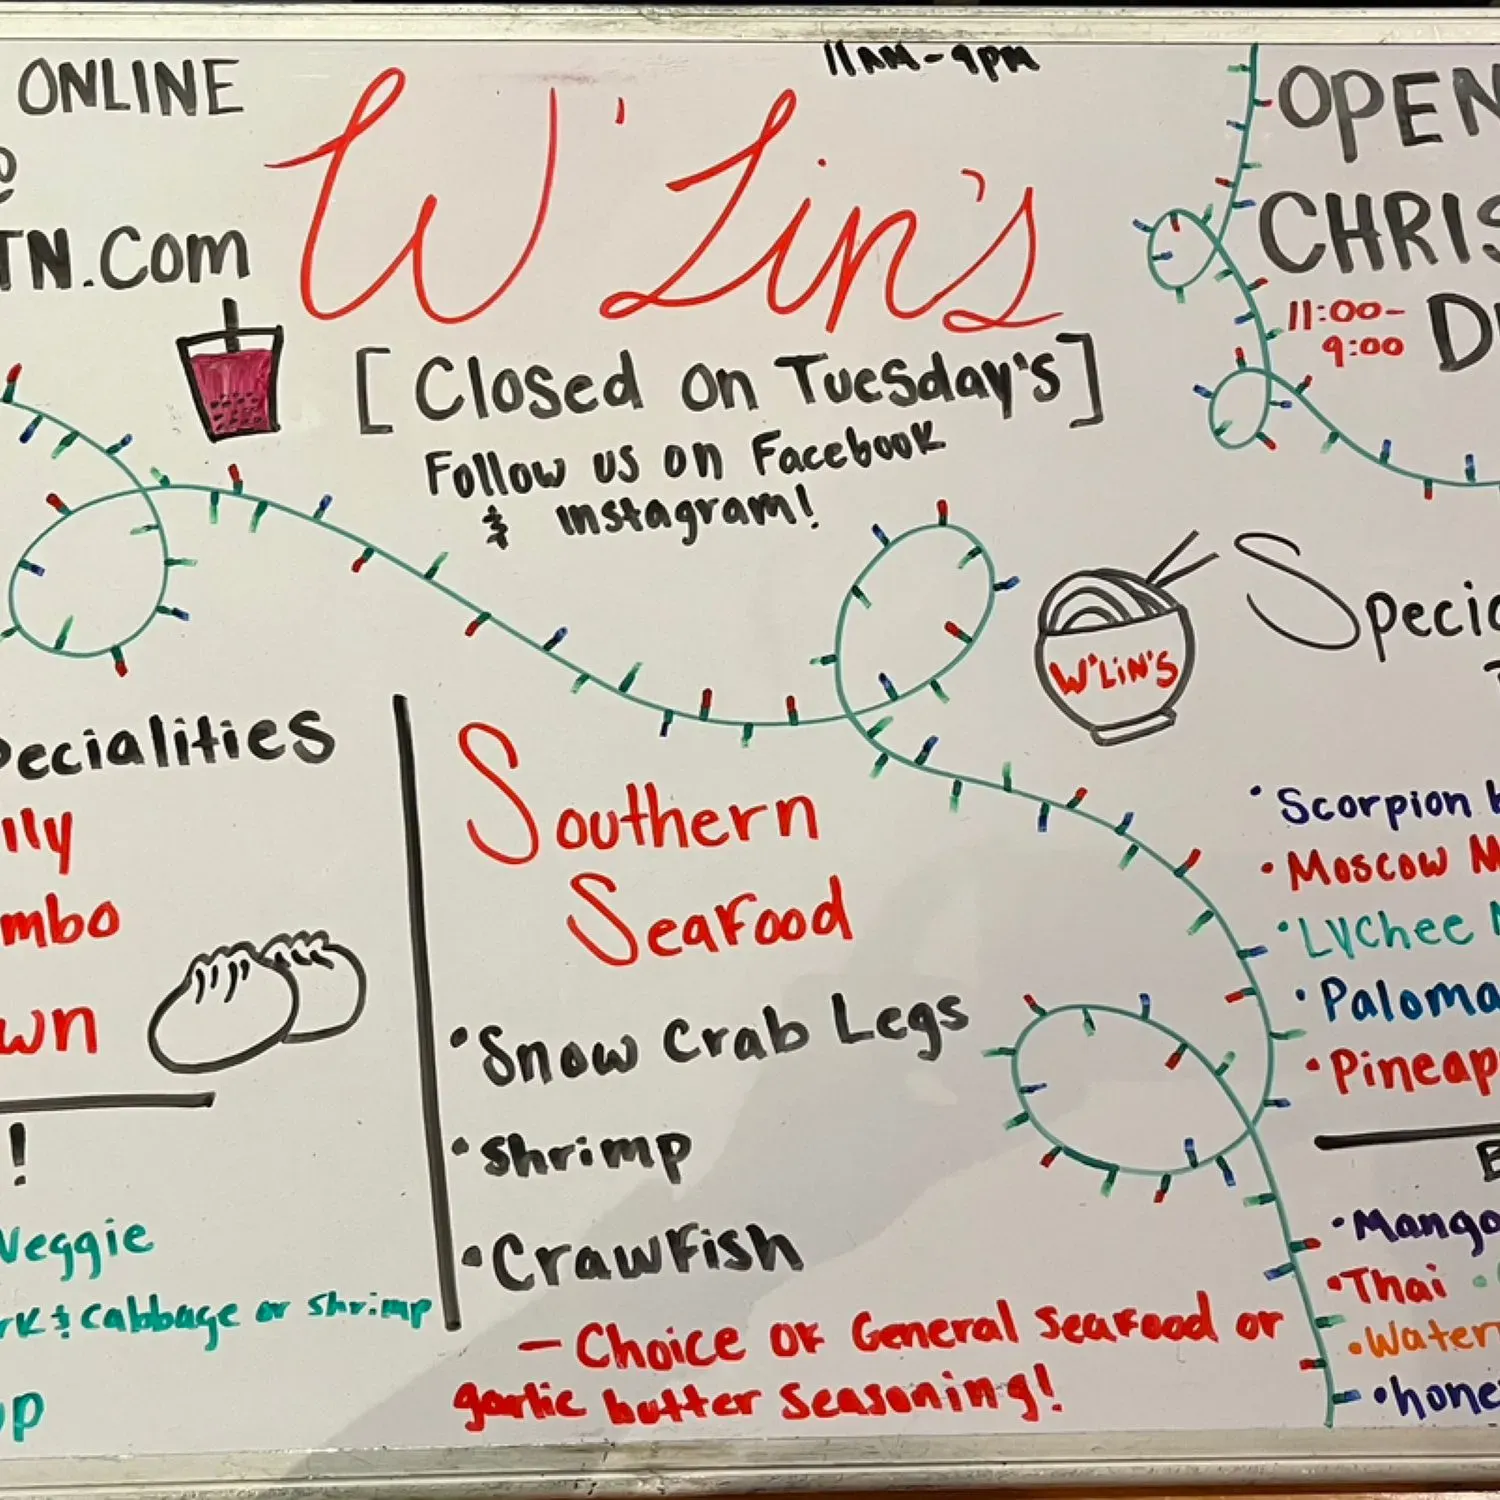 ONLINE
TN.Com
11AM-9PM
W'Lin's
[Closed on Tuesday's]
Follow us on Facebook
& Instagram!
OPEN
CHRIS
11:00-
9:00
W'LiN'S
ecialities
illy
mbo
wn
!
Veggie
rk & cabbage or shrimp
up
Southern
Seafood
• Snow Crab Legs
• Shrimp
• Crawfish
– Choice of General Seafood or
garlic butter seasoning!
Specia
• Scorpion
• Moscow M
• Lychee
• Paloma
• Pineap
• Mango
• Thai
• Water
• hone